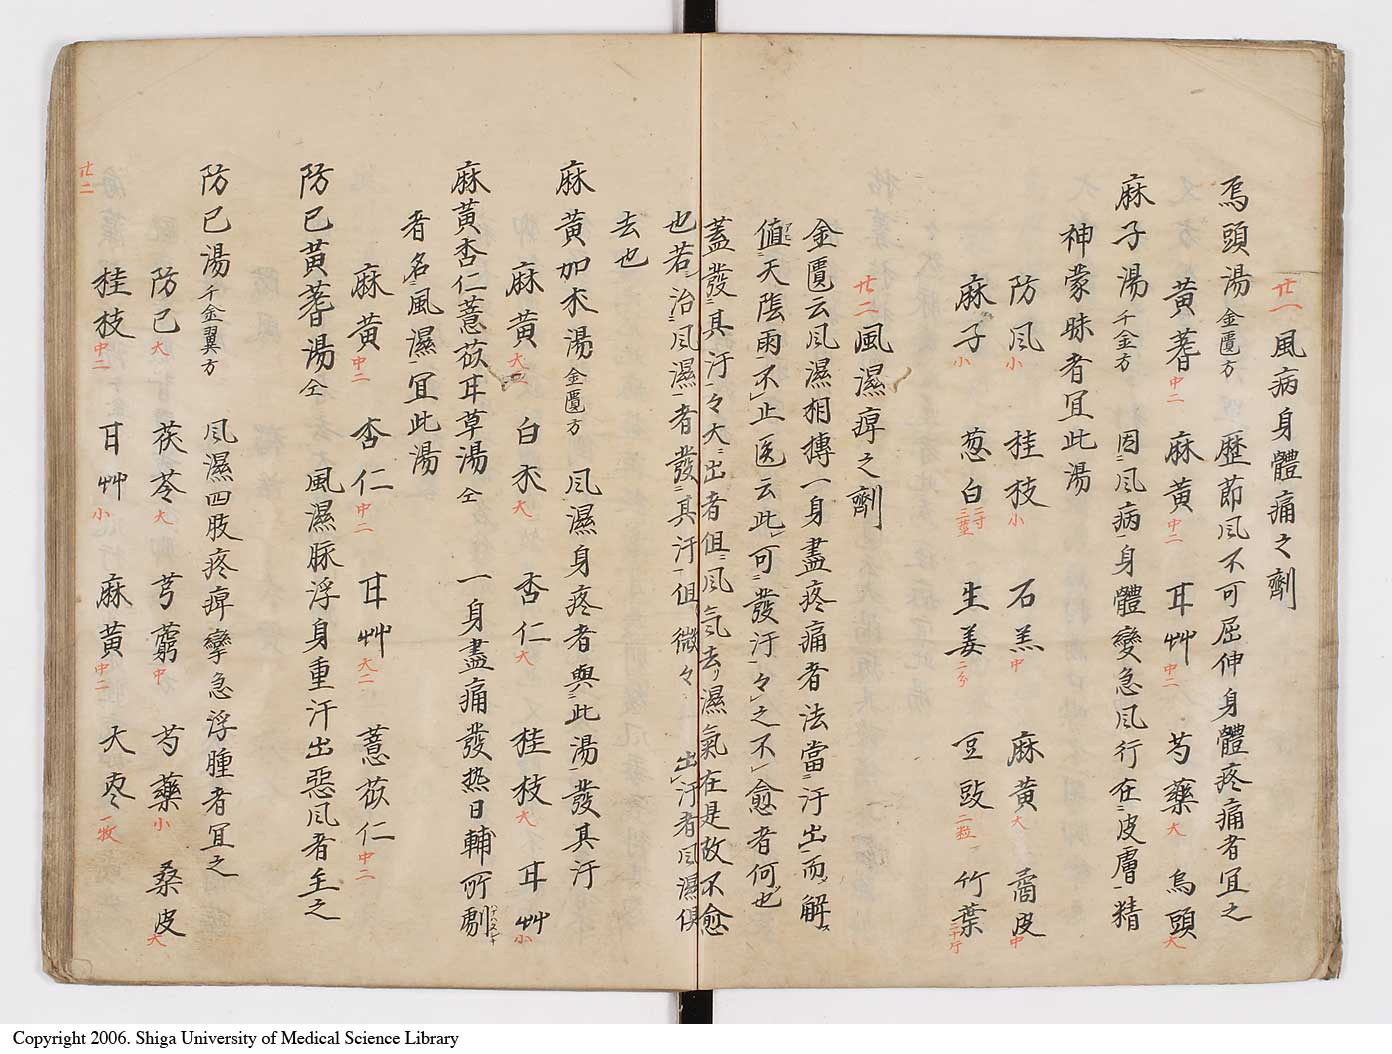 廿一 風病身體痛之劑
烏頭湯 金匱方 歴節風不可屈伸身體疼痛者宜之
黄蓍 中二 麻黄 中二 甘艸 中二 芍藥 大 烏頭 大
麻子湯 千金方 因風病身體變急風行在皮膚精
神蒙昧者宜此湯
防風 小 桂枝 小 石羔 中 麻黄 大 橘皮 中
麻子 小 葱白 二寸 三茎 生姜 二分 豆豉 二粒 竹葉
廿二 風濕痺之劑
金匱云風濕相摶一身盡疼痛者法當汗出而解
値天陰雨不止医云此可發汗々之不愈者何也
蓋發其汗々大出者但風気去濕氣在是故不愈
也若治風濕者發其汗但微々 出汗者風濕倶
去也
麻黄加朮湯 金匱方 風濕身疼者與此湯發其汗
麻黄 大二 白朮 大 杏仁 大 桂枝 大 甘艸 小
麻黄杏仁薏苡甘草湯 仝 一身盡痛發热日輔所劇
者名風濕宜此湯
麻黄 中二 杏仁 中二 甘艸 大二 薏苡仁 中二
防已黄蓍湯 仝 風濕脈浮身重汗出惡風者主之
防已湯 千金翼方 風濕四肢疼痺攣急浮腫者宜之
防已 大 茯苓 大 芎藭 中 芍藥 小 桑皮 大
桂枝 中二 甘艸 小 麻黄 中二 大枣 一枚
廿二
Copyright 2006. Shiga University of Medical Science Library